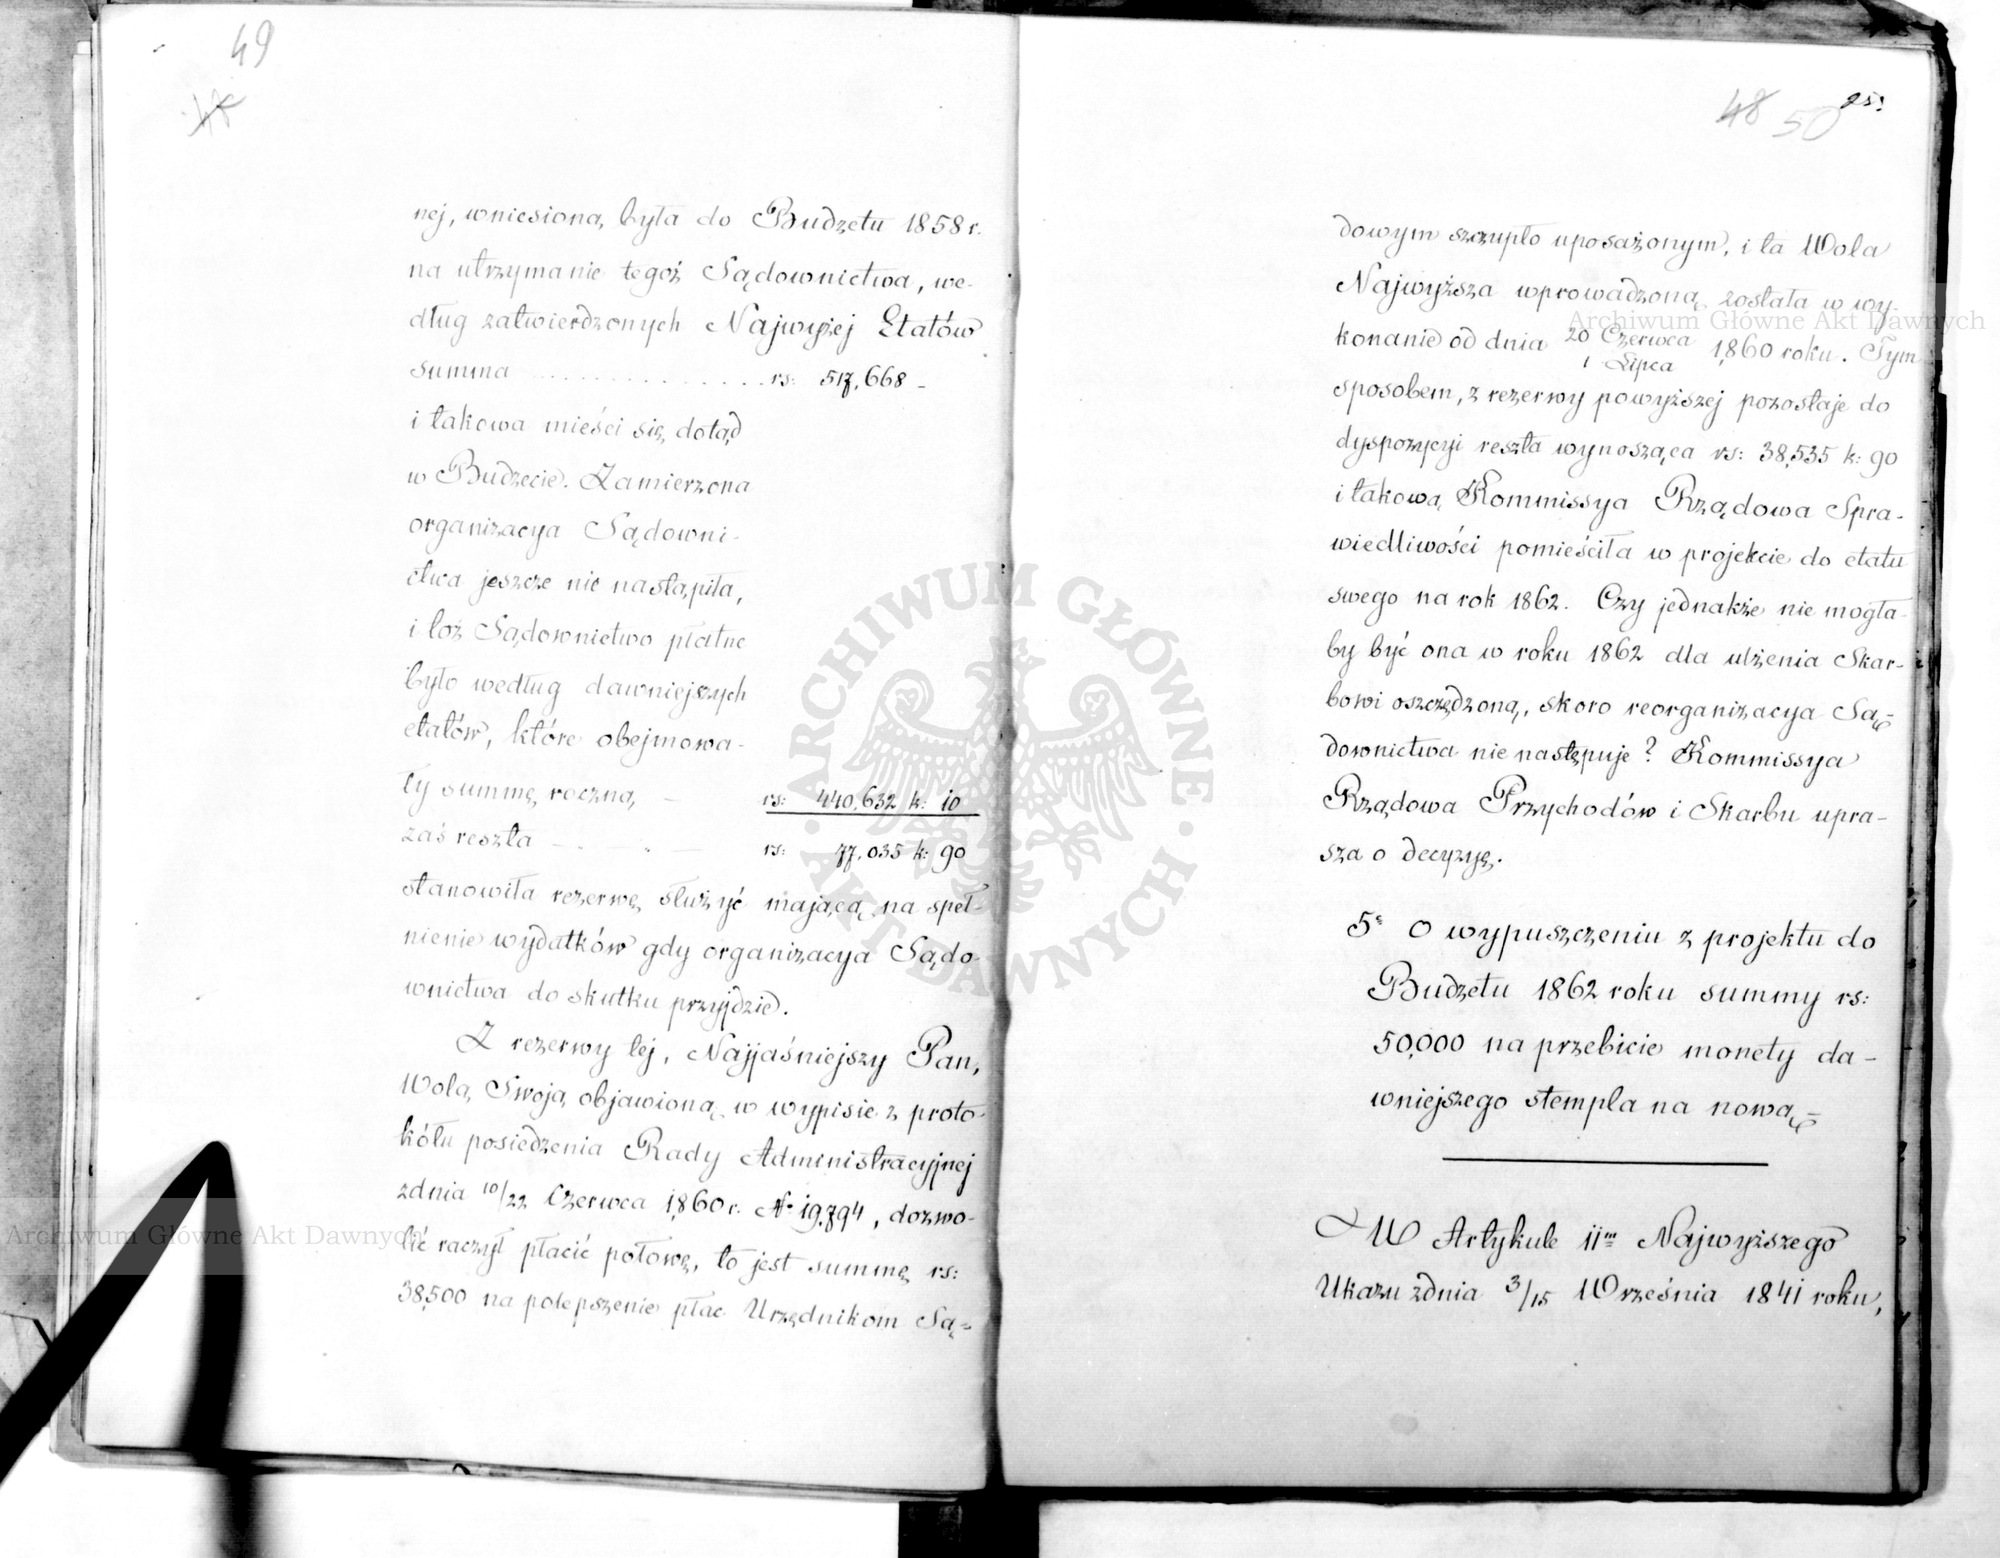 49
nej, wniesioną była do Budżetu 1858 r.
na utrzymanie tegoż Sądownictwa, we-
dług zatwierdzonych Najwyżej Etatów
summa rs: 517,668 -
i takowa mieści się dotąd
w Budżecie. Zamierzona
organizacya Sądowni-
ctwa jeszcze nie nastąpiła,
i toż Sądownictwo płatne
było według dawniejszych
etatów, które obejmowa-
ły summę roczną - rs: 440,632 k: 10
zaś reszta rs: 77,035 k: 90
stanowiła rezerwę służyć mającą na speł-
nienie wydatków gdy organizacya Sądo-
wnictwa do skutku przyjdzie.
Z rezerwy tej, Najjaśniejszy Pan,
Wolą Swoją objawioną w wypisie z proto-
kółu posiedzenia Rady Administracyjnej
z dnia 10/22 Czerwca 1860 r. № 19,794, dozwo-
lić raczył płacić połowę, to jest summę rs:
38,500 na polepszenie płac Urzędnikom Są=
48 50 25.
dowym szczupło uposażonym, i ta Wola
Najwyższa wprowadzoną została w wy-
konanie od dnia 20 Czerwca / 1 Lipca 1860 roku. Tym
sposobem, z rezerwy powyższej pozostaje do
dyspozycyi reszta wynosząca rs: 38,535 k: 90
i takową Kommissya Rządowa Spra-
wiedliwości pomieściła w projekcie do etatu
swego na rok 1862. Czy jednakże nie mogła-
by być ona w roku 1862 dla ulżenia Skar-
bowi oszczędzoną, skoro reorganizacya Są=
downictwa nie następuje? Kommissya
Rządowa Przychodów i Skarbu upra-
sza o decyzyę.
5e O wypuszczeniu z projektu do
Budżetu 1862 roku summy rs:
50,000 na przebicie monety da-
wniejszego stempla na nową=
W Artykule 11m Najwyższego
Ukazu z dnia 3/15 Września 1841 roku,
Archiwum Główne Akt Dawnych
Archiwum Główne Akt Dawnych
ARCHIWUM GŁÓWNE · AKT DAWNYCH ·